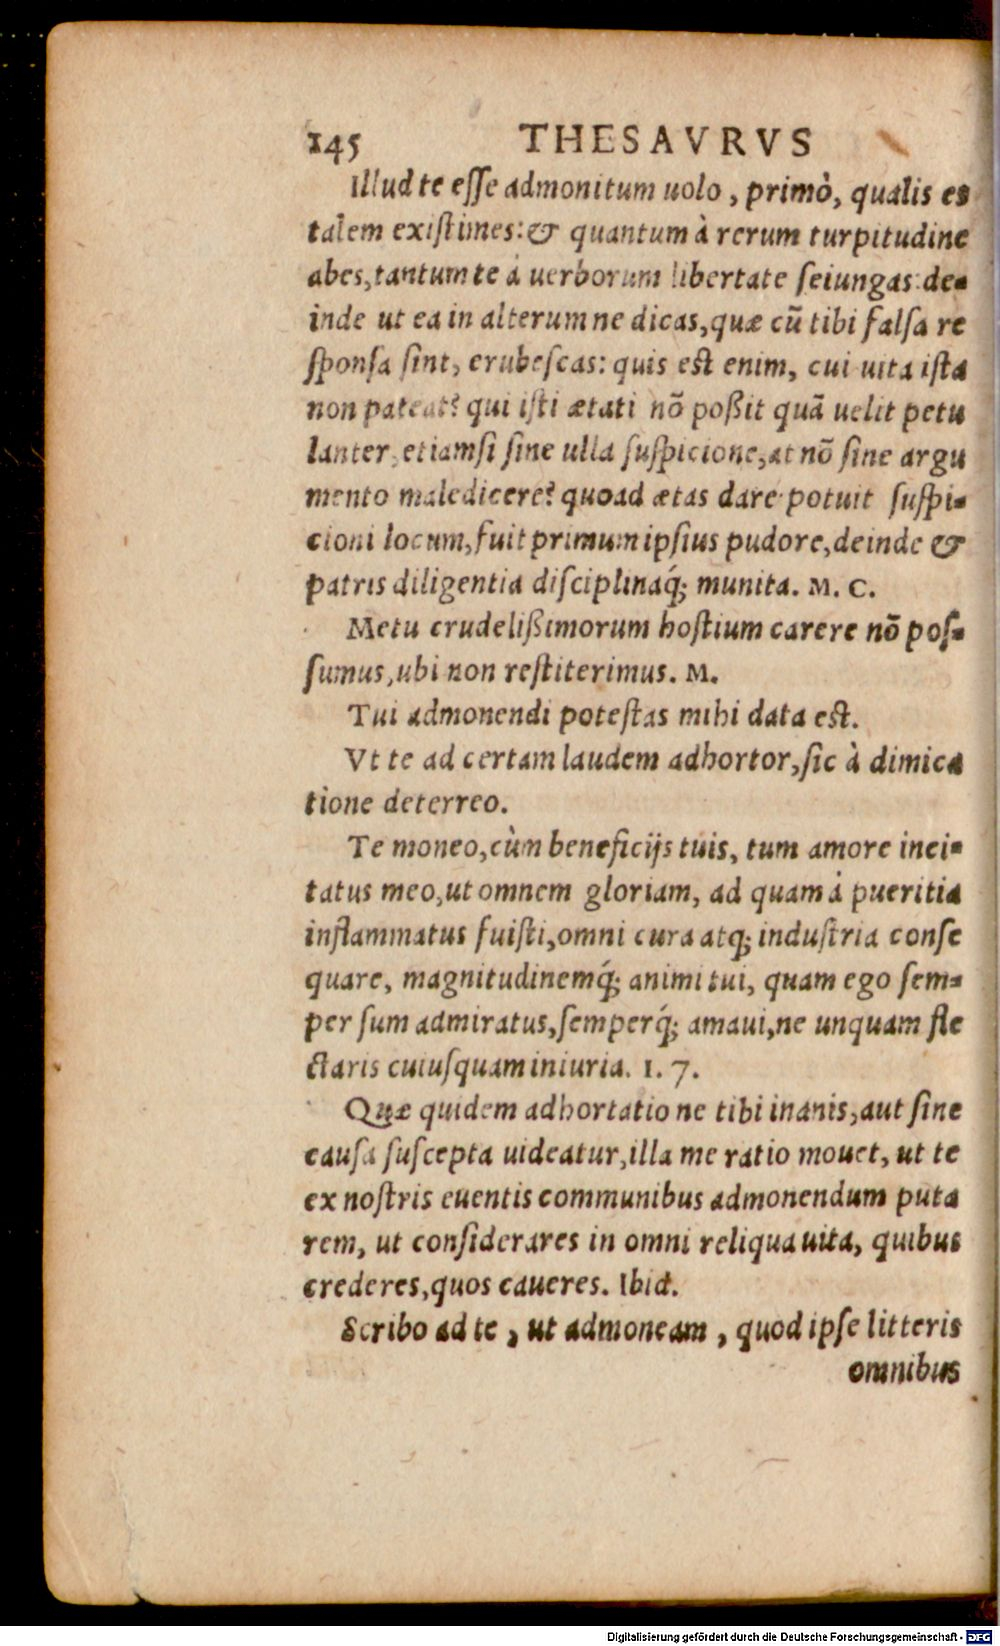 145 THESAVRVS
Illud te esse admonitum uolo, primò, qualis es
talem existimes: & quantum à rerum turpitudine
abes, tantum te à uerborum libertate seiungas: de-
inde ut ea in alterum ne dicas, quæ cũ tibi falsa re
sponsa sint, erubescas: quis est enim, cui uita ista
non pateat? qui isti ætati nõ poßit quã uelit petu
lanter, etiamsi sine ulla suspicione, at nõ sine argu
mento maledicere? quoad ætas dare potuit suspi-
cioni locum, fuit primum ipsius pudore, deinde &
patris diligentia disciplinaq́; munita. M. C.
Metu crudelißimorum hostium carere nõ pos-
sumus, ubi non restiterimus. M.
Tui admonendi potestas mihi data est.
Vt te ad certam laudem adhortor, sic à dimica
tione deterreo.
Te moneo, cùm beneficijs tuis, tum amore inci-
tatus meo, ut omnem gloriam, ad quam à pueritia
inflammatus fuisti, omni cura atq; industria conse
quare, magnitudinemq́; animi tui, quam ego sem-
per sum admiratus, semperq́; amaui, ne unquam fle
ctaris cuiusquam iniuria. I. 7.
Quæ quidem adhortatio ne tibi inanis, aut sine
causa suscepta uideatur, illa me ratio mouet, ut te
ex nostris euentis communibus admonendum puta
rem, ut considerares in omni reliqua uita, quibus
crederes, quos caueres. Ibid.
Scribo ad te, ut admoneam, quod ipse litteris
omnibus
Digitalisierung gefördert durch die Deutsche Forschungsgemeinschaft - DFG